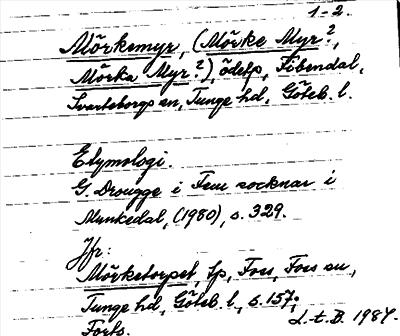 1-2.
Mörkemyr, (Mörke Myr?,
Mörka Myr?), ödetp, Fibendal,
Svarteborgs sn, Tunge hd, Göteb. l.
Etymologi.
G. Drougge i Fem socknar i
Munkedal, (1980), s. 329.
Jfr:
Mörketorpet, tp, Foss, Foss sn,
Tunge hd, Göteb. l., s. 157;
Forts.
L.t.B. 1984.